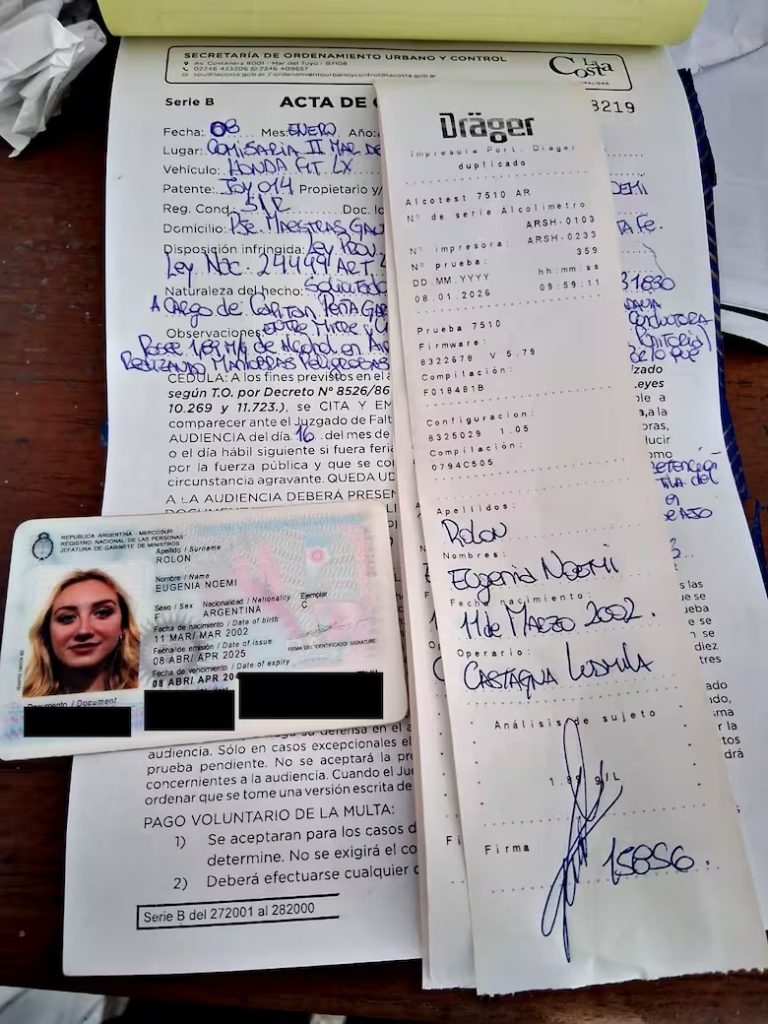 SECRETARÍA DE ORDENAMIENTO URBANO Y CONTROL
Av. Costanera 8001 - Mar del Tuyú - 87108
02246 433206
La Costa
Serie B ACTA DE
3219
Fecha: 08 Mes: ENERO Año:
Lugar: COMISARIA II MAR DE
Vehículo: HONDA FIT LX
Patente: JOY 014 Propietario y/
Reg. Cond. S/R Doc. Id
Domicilio: PJE. MAESTRAS
TA FE.
Disposición infringida: LEY PROV.
LEY NAC. 24449 ART.
Naturaleza del hecho: SOLICITADO
31830
A CARGO DE CAPITAN PEÑA
CONDUCTORA
Observaciones: ENTRE MITRE Y
POSEE 1,89 M/G DE ALCOHOL EN
REALIZANDO MANIOBRAS PELIGROSAS
CEDULA: A los fines previstos en el a
según T.O. por Decreto Nº 8526/86
10.269 y 11.723.), se CITA Y EM
comparecer ante el Juzgado de Falt
AUDIENCIA del día 16 del mes de
o el día hábil siguiente si fuera feria
por la fuerza pública y que se co
circunstancia agravante. QUEDA U
A LA AUDIENCIA DEBERÁ PRESEN
Dräger
Impresora Port. Drager
duplicado
Alcotest 7510 AR
Nº de serie Alcolimetro
ARSH-0103
Nº impresora: ARSH-0233
Nº prueba: 359
DD.MM.YYYY hh:mm:ss
08.01.2026 09:59:11
Prueba 7510
Firmware:
8322678 V 5.79
Compilación:
F018481B
Configuracion:
8325029 1.05
Compilación:
0794C505
Apellidos:
ROLON
Nombres:
EUGENIA NOEMI
Fecha nacimiento:
11 de MARZO 2002.
Operario:
CASTAGNA LUDMILA
Análisis de sujeto
1.89 g/L
Firma
15856.
REPUBLICA ARGENTINA - MERCOSUR
REGISTRO NACIONAL DE LAS PERSONAS
JEFATURA DE GABINETE DE MINISTROS
Apellido / Surname
ROLON
Nombre / Name
EUGENIA NOEMI
Sexo / Sex Nacionalidad / Nationality Ejemplar
F ARGENTINA C
Fecha de nacimiento / Date of birth
11 MAR/ MAR 2002
Fecha de emisión / Date of issue
08 ABR/ APR 2025
FIRMA DEL IDENTIFICADO/ SIGNATURE
Fecha de vencimiento / Date of expiry
08 ABR/ APR 204
Documento / Document
su defensa en el a
audiencia. Sólo en casos excepcionales el
prueba pendiente. No se aceptará la pr
concernientes a la audiencia. Cuando el Ju
ordenar que se tome una versión escrita de
PAGO VOLUNTARIO DE LA MULTA:
1) Se aceptaran para los casos d
determine. No se exigirá el co
2) Deberá efectuarse cualquier
Serie B del 272001 al 282000